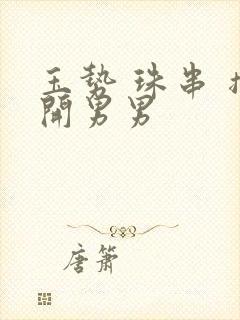 玉势珠串
開男男
唐箫